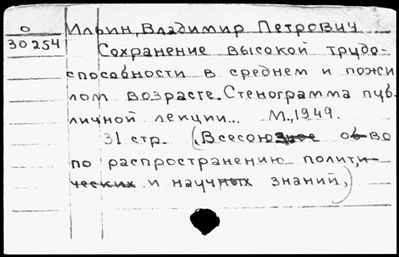 О
30254
Ильин, Владимир Петрович
Сохранение высокой трудо-
способности в среднем и пожи
лом возрасте. Стенограмма пуб-
личной лекции... М., 1949.
31 стр. (Всесоюзное о-во
по распространению полити-
ческих и научных знаний)